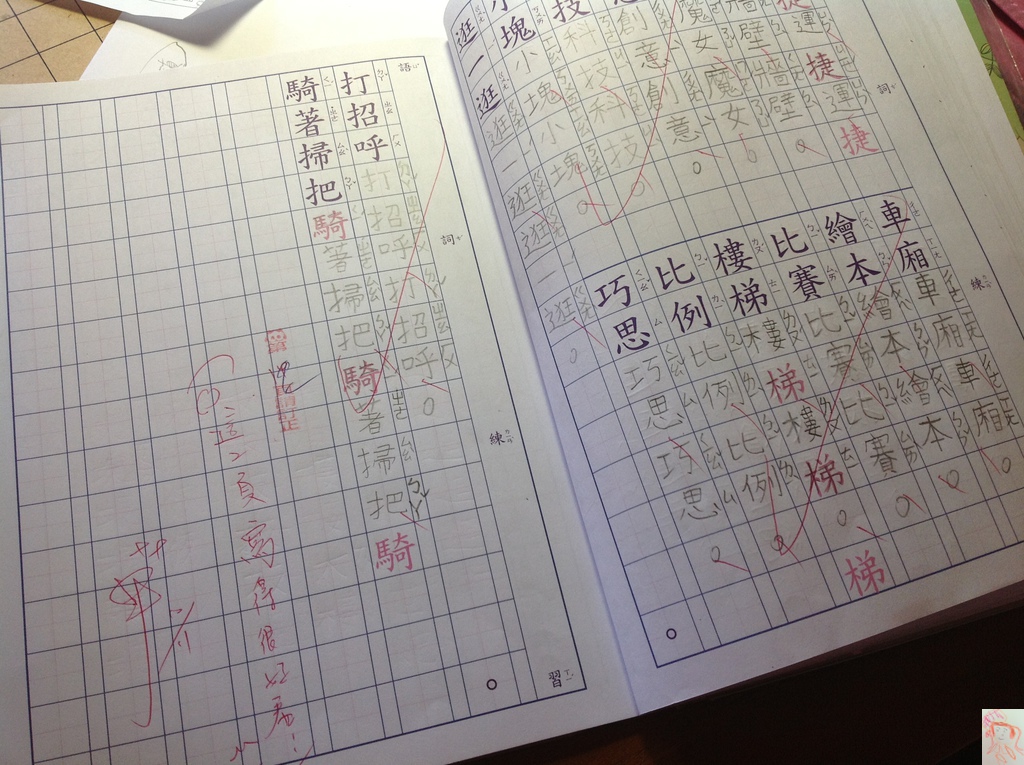 詞練
捷運捷運捷
牆壁牆壁
魔女魔女
創意創意
技科技科技
小塊小塊小塊
逛一逛逛一逛逛一逛
車廂車廂車廂
繪本繪本繪本
比賽比賽比賽
樓梯樓梯樓梯梯
比例比例比例
巧思巧思巧思
語詞練習
打招呼打招呼打招呼
騎著掃把騎著掃把騎著掃把騎
這2頁寫得很好看!